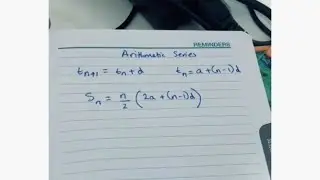 REMINDERS
Arithmetic Series
tₙ₊₁ = tₙ + d    tₙ = a + (n-1)d
Sₙ = n/2 (2a + (n-1)d)